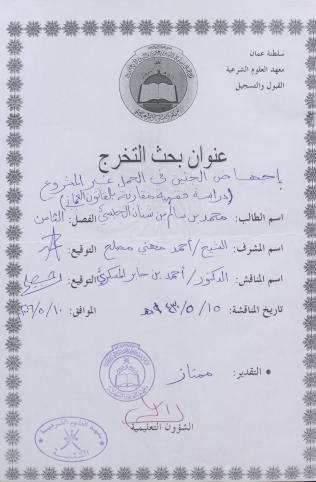 سلطنة عمان
معهد العلوم الشرعية
القبول والتسجيل
عنوان بحث التخرج
إجهاض الجنين في الحمل غير المشروع
(دراسة فقهية مقارنة بالقانون العماني)
اسم الطالب: محمد بن سالم بن شنان الحبسي الفصل: الثامن
اسم المشرف: الشيخ/ أحمد مهني مصلح التوقيع:
اسم المناقش: الدكتور/ أحمد بن جابر المسكري التوقيع:
تاريخ المناقشة: ١٥/٥/١٤٣٠هـ الموافق: ١٠/٥/
• التقدير: ممتاز
الشؤون التعليمية
معهد العلوم الشرعية